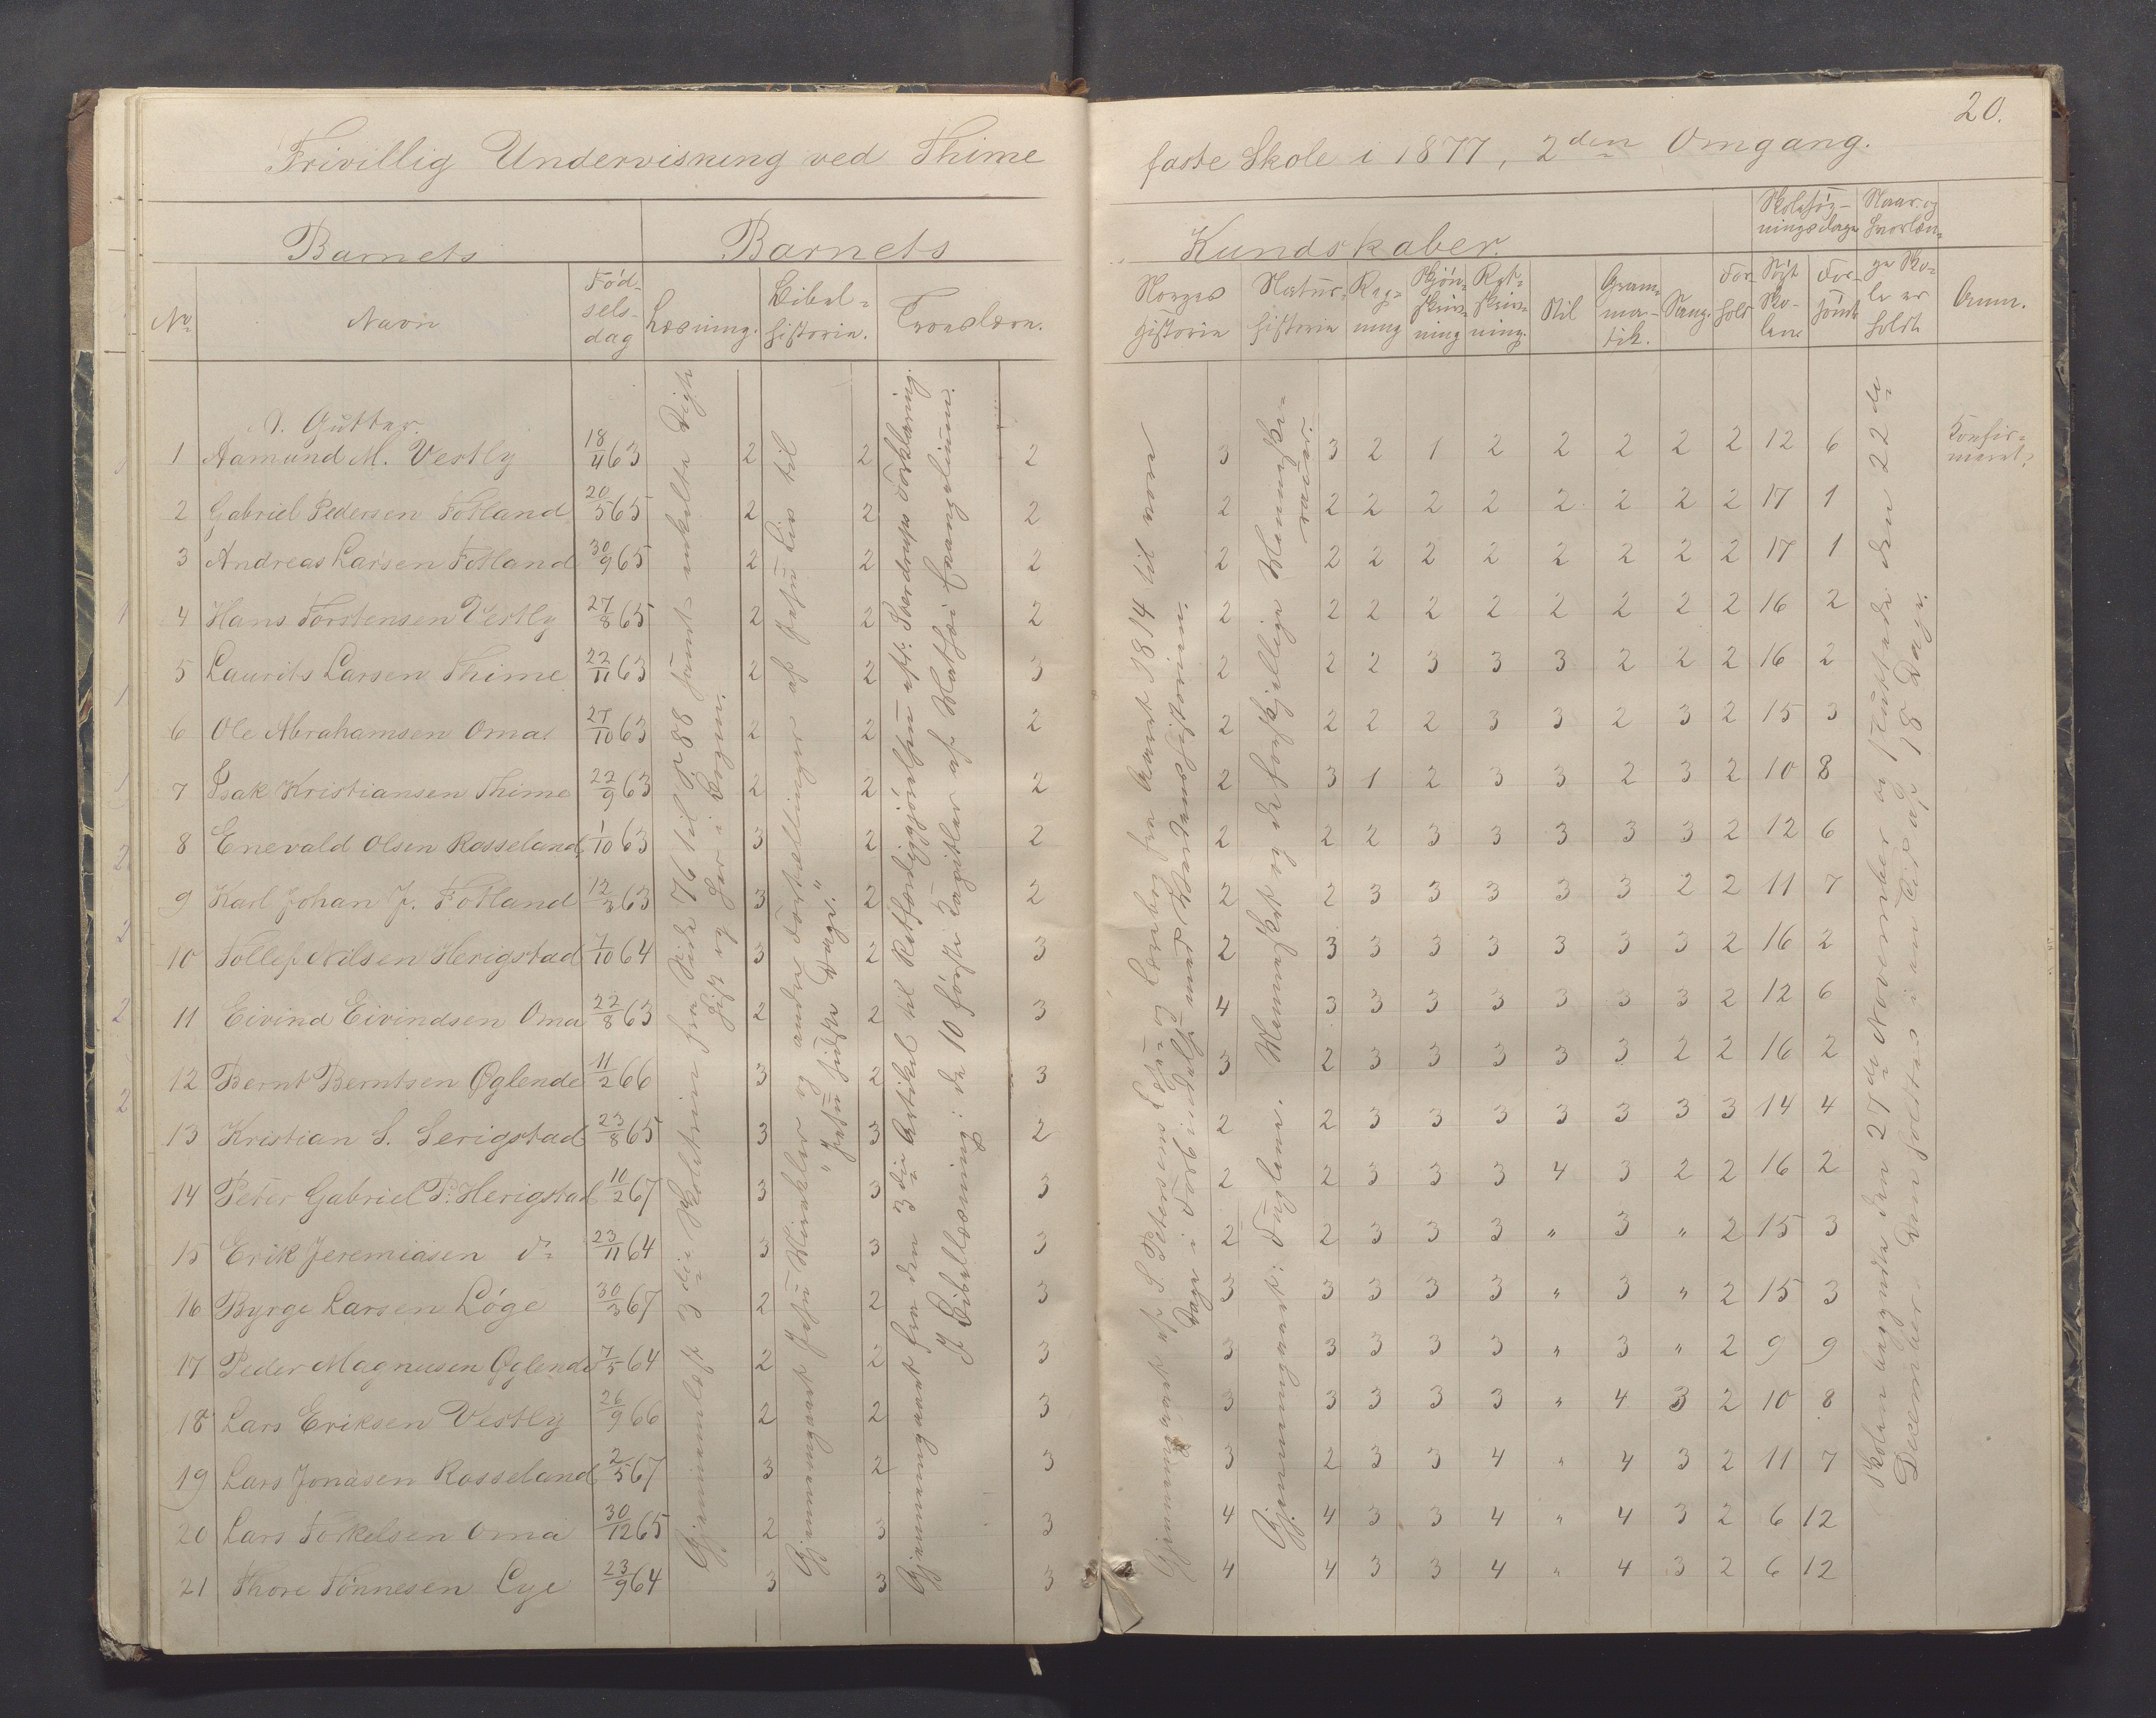 20.
Frivillig Undervisning ved Thime faste Skole i 1877, 2den Omgang.
Barnets Barnets Kundskaber.
No Navn Fødselsdag Læsning. Bibelhistorie. Troeslære. Norges Historie Naturhistorie Regning Skjønskrivning Retskrivning. Stil Grammatik. Sang. Forhold Søgt Skolen Forsømt Anm.
A. Gutter.
1 Aamund M. Vestly 18/4 63 2 2 2 3 3 2 1 2 2 2 2 2 12 6 Konfirmeret
2 Gabriel Pedersen Fotland 20/5 65 2 2 2 2 2 2 2 2 2 2 2 2 17 1
3 Andreas Larsen Fotland 30/9 65 2 2 2 2 2 2 2 2 2 2 2 2 17 1
4 Hans Torstensen Vestly 27/8 65 2 2 2 2 2 2 2 2 2 2 2 2 16 2
5 Laurits Larsen Thime 22/11 63 2 2 3 2 2 2 3 3 3 2 2 2 16 2
6 Ole Abrahamsen Oma 27/10 63 2 2 2 2 2 2 2 3 3 2 3 2 15 3
7 Isak Kristiansen Thime 22/9 63 2 2 2 2 3 1 2 3 3 2 3 2 10 8
8 Enevald Olsen Rosseland 1/10 63 3 2 2 2 2 2 3 3 3 3 3 2 12 6
9 Karl Johan J. Fotland 12/3 63 3 2 2 2 2 3 3 3 3 3 2 2 11 7
10 Tollef Nilsen Herigstad 7/10 64 3 2 3 2 3 3 3 3 3 3 3 2 16 2
11 Eivind Eivindsen Oma 22/8 63 2 2 3 4 3 3 3 3 3 3 3 2 12 6
12 Bernt Berntsen Øglende 11/2 66 3 2 3 3 2 3 3 3 3 3 2 2 16 2
13 Kristian S. Serigstad 23/8 65 3 3 2 2 2 3 3 3 3 3 3 3 14 4
14 Peter Gabriel P. Herigstad 10/2 67 3 3 3 2 2 3 3 3 4 3 2 2 16 2
15 Erik Jeremiasen do 23/11 64 3 3 3 2 2 3 3 3 " 3 " 2 15 3
16 Byrge Larsen Löge 30/3 67 2 2 3 3 3 3 3 3 " 3 " 2 15 3
17 Peder Magnusen Øglende 7/5 64 2 2 3 3 3 3 3 3 " 3 " 2 9 9
18 Lars Eriksen Vestly 26/9 66 2 2 3 3 3 3 3 3 " 4 3 2 10 8
19 Lars Jonasen Rosseland 2/5 67 3 2 3 3 2 3 3 4 " 4 3 2 11 7
20 Lars Torkelsen Oma 30/12 65 2 3 3 4 4 3 3 4 " 4 3 2 6 12
21 Thore Tönnesen Lye 23/9 64 3 3 3 4 4 3 3 4 " 4 3 2 6 12
Gjennemlæst 3die Skoletrin fra Side 76 til p 88 samt enkelte Digte
hist og her i Bogen.
Gjennemgaaet Jesu Mirakler og andre Fortællinger af Jesu Liv til
"Jesu sidste Dage."
Gjennemgaaet fra den 3die Artikel til Retfærdiggjørelsen eft: Sverdrups Forklaring.
I Bibellæsning: de 10 første Kapitler af Matthæi Evangelium.
Gjennemgaaet af S. Petersens Læse og Lærebog fra Aaret 1814 til vore
Dage i Forbindelse med Kartenshistorien.
Gjennemgaaet: Fuglene. Mennesket og de forskjellige Menneskeracer.
Skolen begyndte den 27de November og sluttede den 22de
December. Den holdtes i en Tid af 18 Dage.